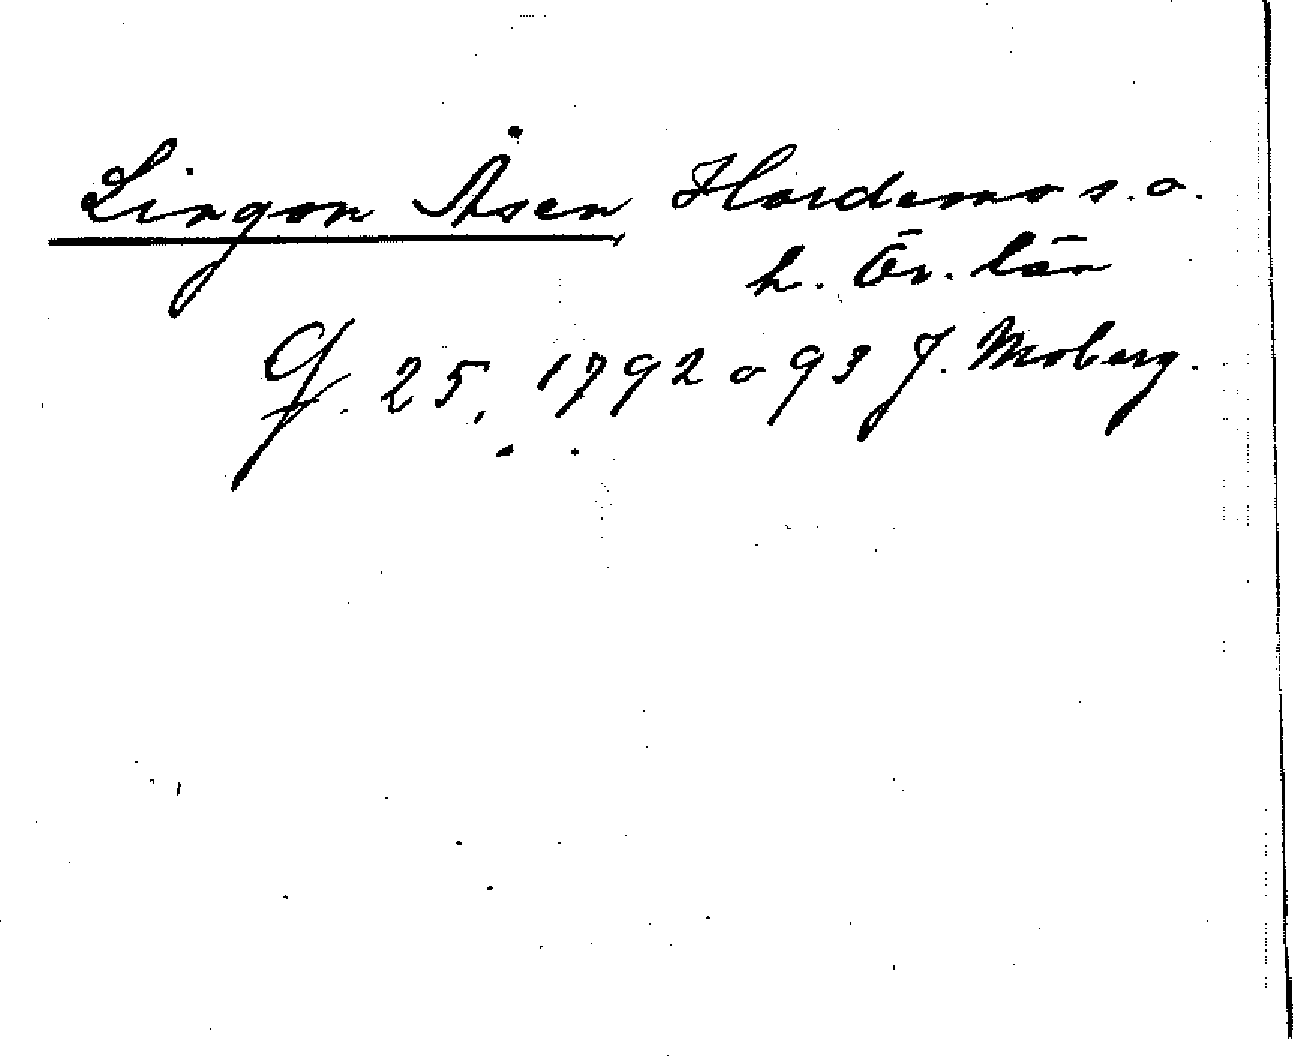 Lingon Åsen Hardemo s. o.
h. Ör. län
G. 25, 1792 o 93 J. Moberg.